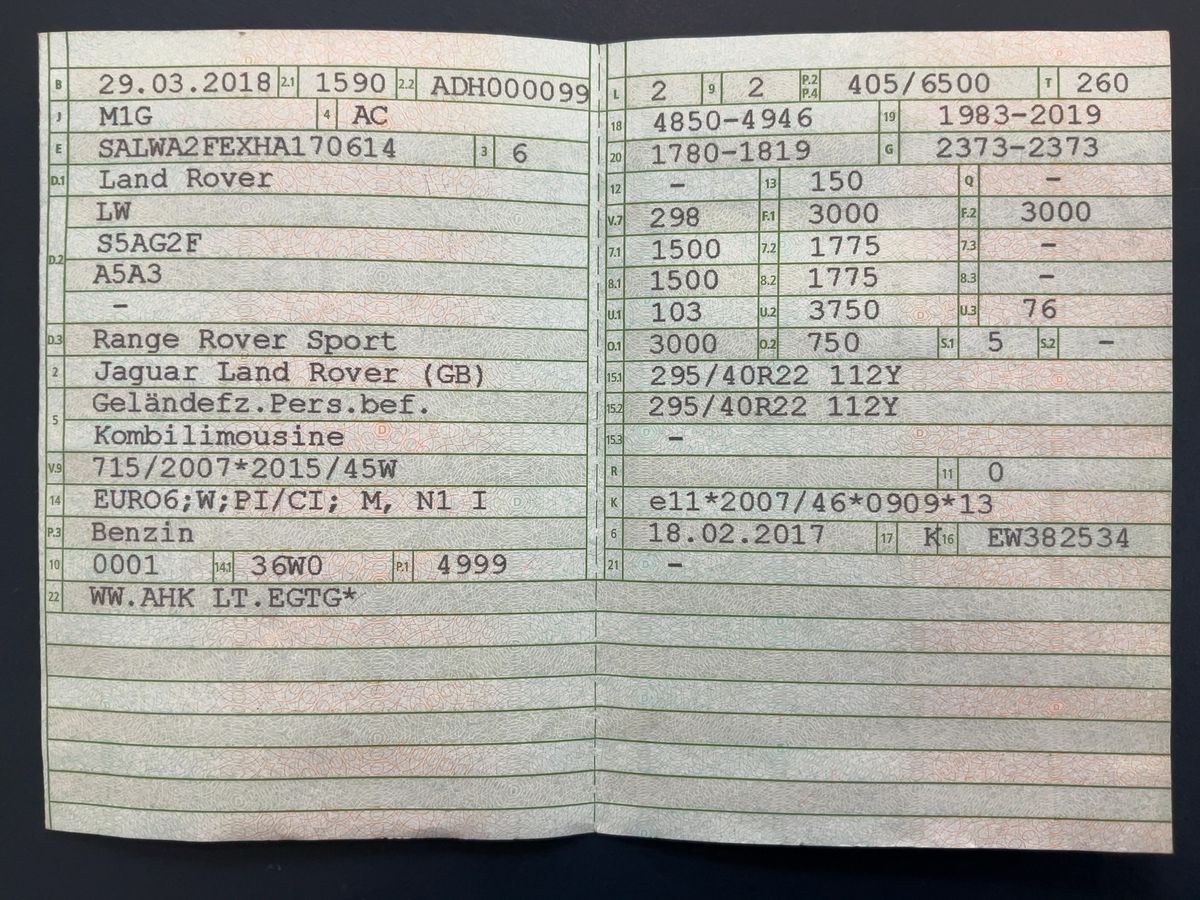 B 29.03.2018 2.1 1590 2.2 ADH000099
J M1G 4 AC
E SALWA2FEXHA170614 3 6
D.1 Land Rover
LW
S5AG2F
D.2 A5A3
–
D.3 Range Rover Sport
2 Jaguar Land Rover (GB)
5 Geländefz.Pers.bef.
Kombilimousine
V.9 715/2007*2015/45W
14 EURO6;W;PI/CI; M, N1 I
P.3 Benzin
10 0001 14.1 36W0 P.1 4999
22 WW.AHK LT.EGTG*
L 2 9 2 P.2 P.4 405/6500 T 260
18 4850–4946 19 1983–2019
20 1780–1819 G 2373–2373
12 – 13 150 Q –
V.7 298 F.1 3000 F.2 3000
7.1 1500 7.2 1775 7.3 –
8.1 1500 8.2 1775 8.3 –
U.1 103 U.2 3750 U.3 76
O.1 3000 O.2 750 S.1 5 S.2 –
15.1 295/40R22 112Y
15.2 295/40R22 112Y
15.3 –
R 11 0
K e11*2007/46*0909*13
6 18.02.2017 17 K 16 EW382534
21 –